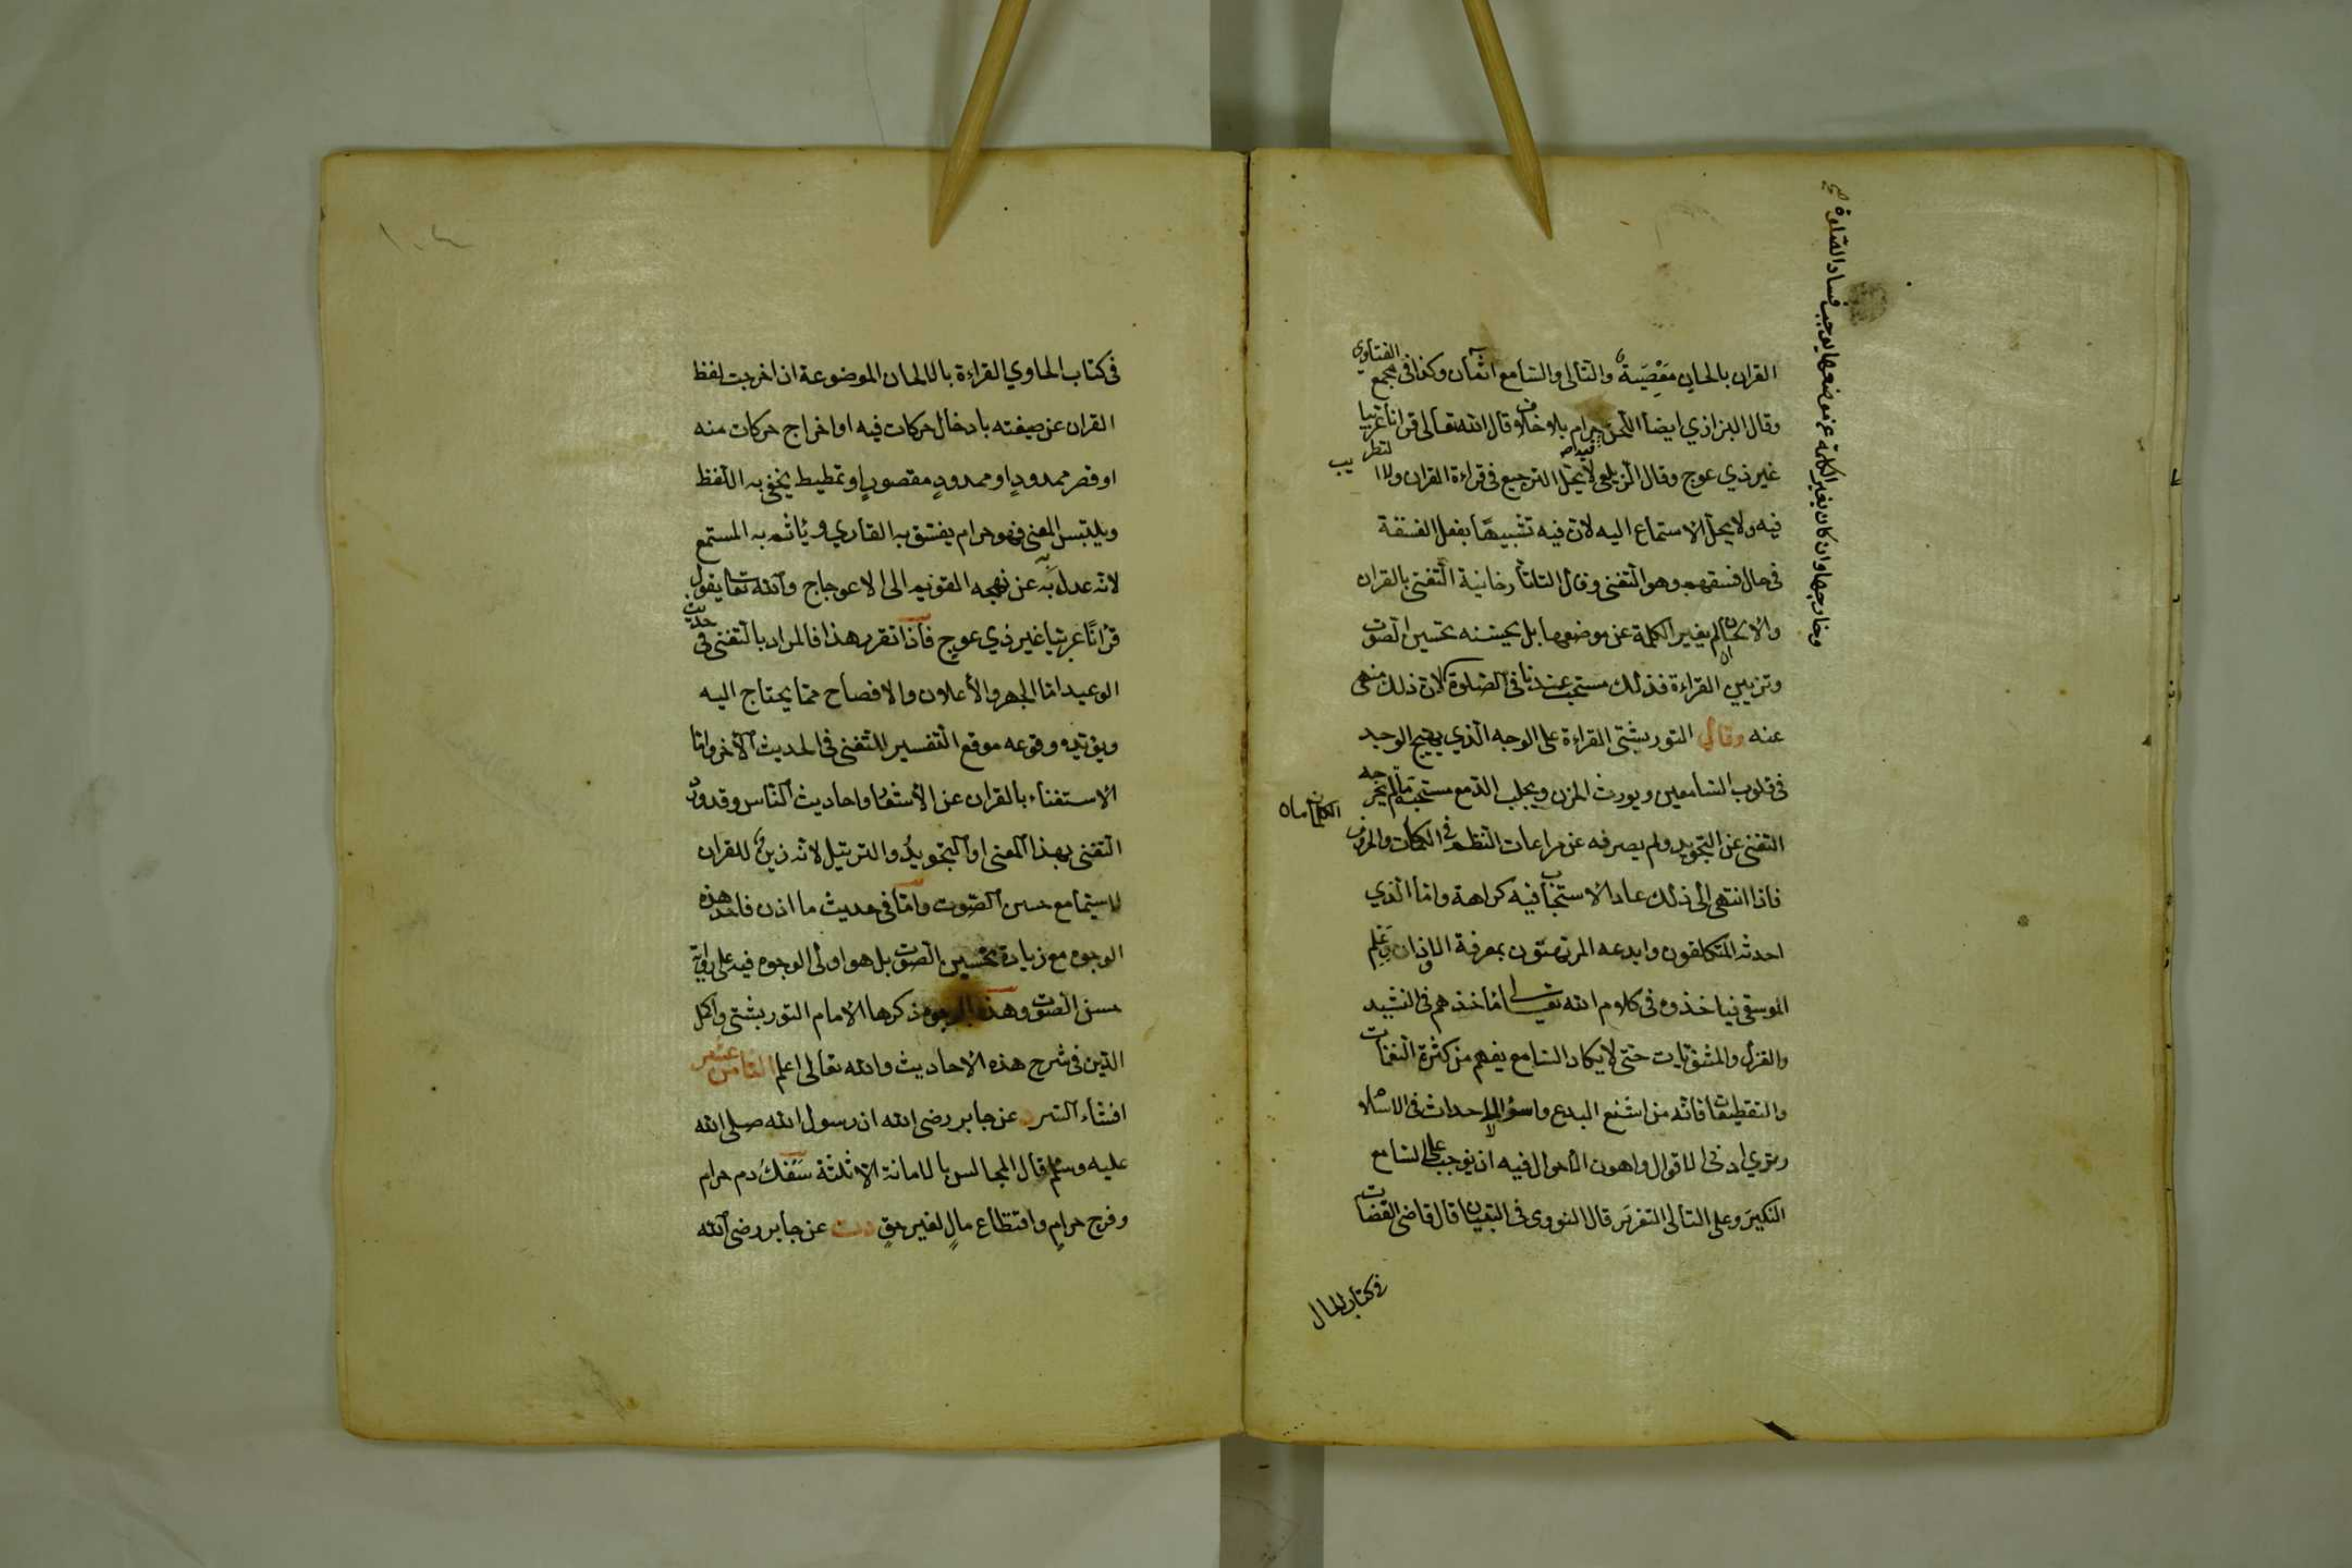 القران بالحان معصية والتالى والسامع اثمان وكذا فى مجمع الفتاوى
وقال البزازي ايضا اللحن حرام بلا خلاف وقال الله تعالى قرانا عربيا
غير ذي عوج وقال الزيلعى لا يحل الترجيع فى قراءة القران ولا التطريب
فيه ولا يحل الاستماع اليه لان فيه تشبيها بفعل الفسقة
فى حال فسقهم وهو التغنى وقال التاتارخانية التغنى بالقران
والالحان ان لم يغير الكلمة عن موضعها بل يحسنه تحسين الصوت
وتزيين القراءة فذلك مستحب عندنا فى الصلوة وخارجها وان كان يغير الكلمة عن موضعها يوجب فساد الصلوة صح
لان ذلك منهى
عنه وقال التوربشتى القراءة على الوجه الذي يهيج الوجد
فى قلوب السامعين ويورث الحزن ويجلب الدمع مستحبة ما لم يخرجه
التغنى عن التجويد ولم يصرفه عن مراعات النظم فى الكلمات والحروف
فاذا انتهى الى ذلك عاد الاستحباب فيه كراهة واما الذي
احدثه المتكلفون وابدعه المرتهنون بمعرفة الاوزان وعلم
الموسقى فياخذون فى كلام الله تعالى ماخذهم فى النشيد
والغزل والمثنويات حتى لا يكاد السامع يفهم من كثرة النغمات
والتقطيعات فانه من اشنع البدع واسوء الاحداث فى الاسلام
ونري ادنى الاقوال واهون الاحوال فيه ان يوجب على السامع
النكير وعلى التالى التعزير قال النووى فى التبيان قال قاضى القضات
فى كتاب
فى كتاب الحاوي القراءة بالالحان الموضوعة ان اخرجت لفظ
القران عن صيغته بادخال حركات فيه او اخراج حركات منه
او قصر ممدود او ممدود مقصور او تمطيط يخفى به اللفظ
ويلتبس المعنى فهو حرام يفسق به القاري وياثم به المستمع
لانه عدل به عن نهجه القويم الى الاعوجاج والله تعالى يقول
قرانا عربيا غير ذي عوج فاذا تقرر هذا فالمراد بالتغنى فى حديث
الوعيد اما الجهر والاعلان والافصاح مما يحتاج اليه
ويؤيده وقوعه موقع التفسير للتغنى فى الحديث الاخر واما
الاستغناء بالقران عن الاشعار واحاديث الناس وقد ورد
التغنى بهذا المعنى او التجويد والترتيل لانه زين للقران
لا سيما مع حسن الصوت واما فى حديث ما اذن فاحد هذه
الوجوه مع زيادة تحسين الصوت بل هو اولى الوجوه فيه على رواية
حسن الصوت وهذه الوجوه ذكرها الامام التوربشتى واكمل
الدين فى شرح هذه الاحاديث والله تعالى اعلم الثامن عشر
افشاء السر عن جابر رضى الله ان رسول الله صلى الله
عليه وسلم قال المجالس بالامانة الا ثلثة سفك دم حرام
وفرج حرام واقتطاع مال لغير حق عن جابر رضى الله